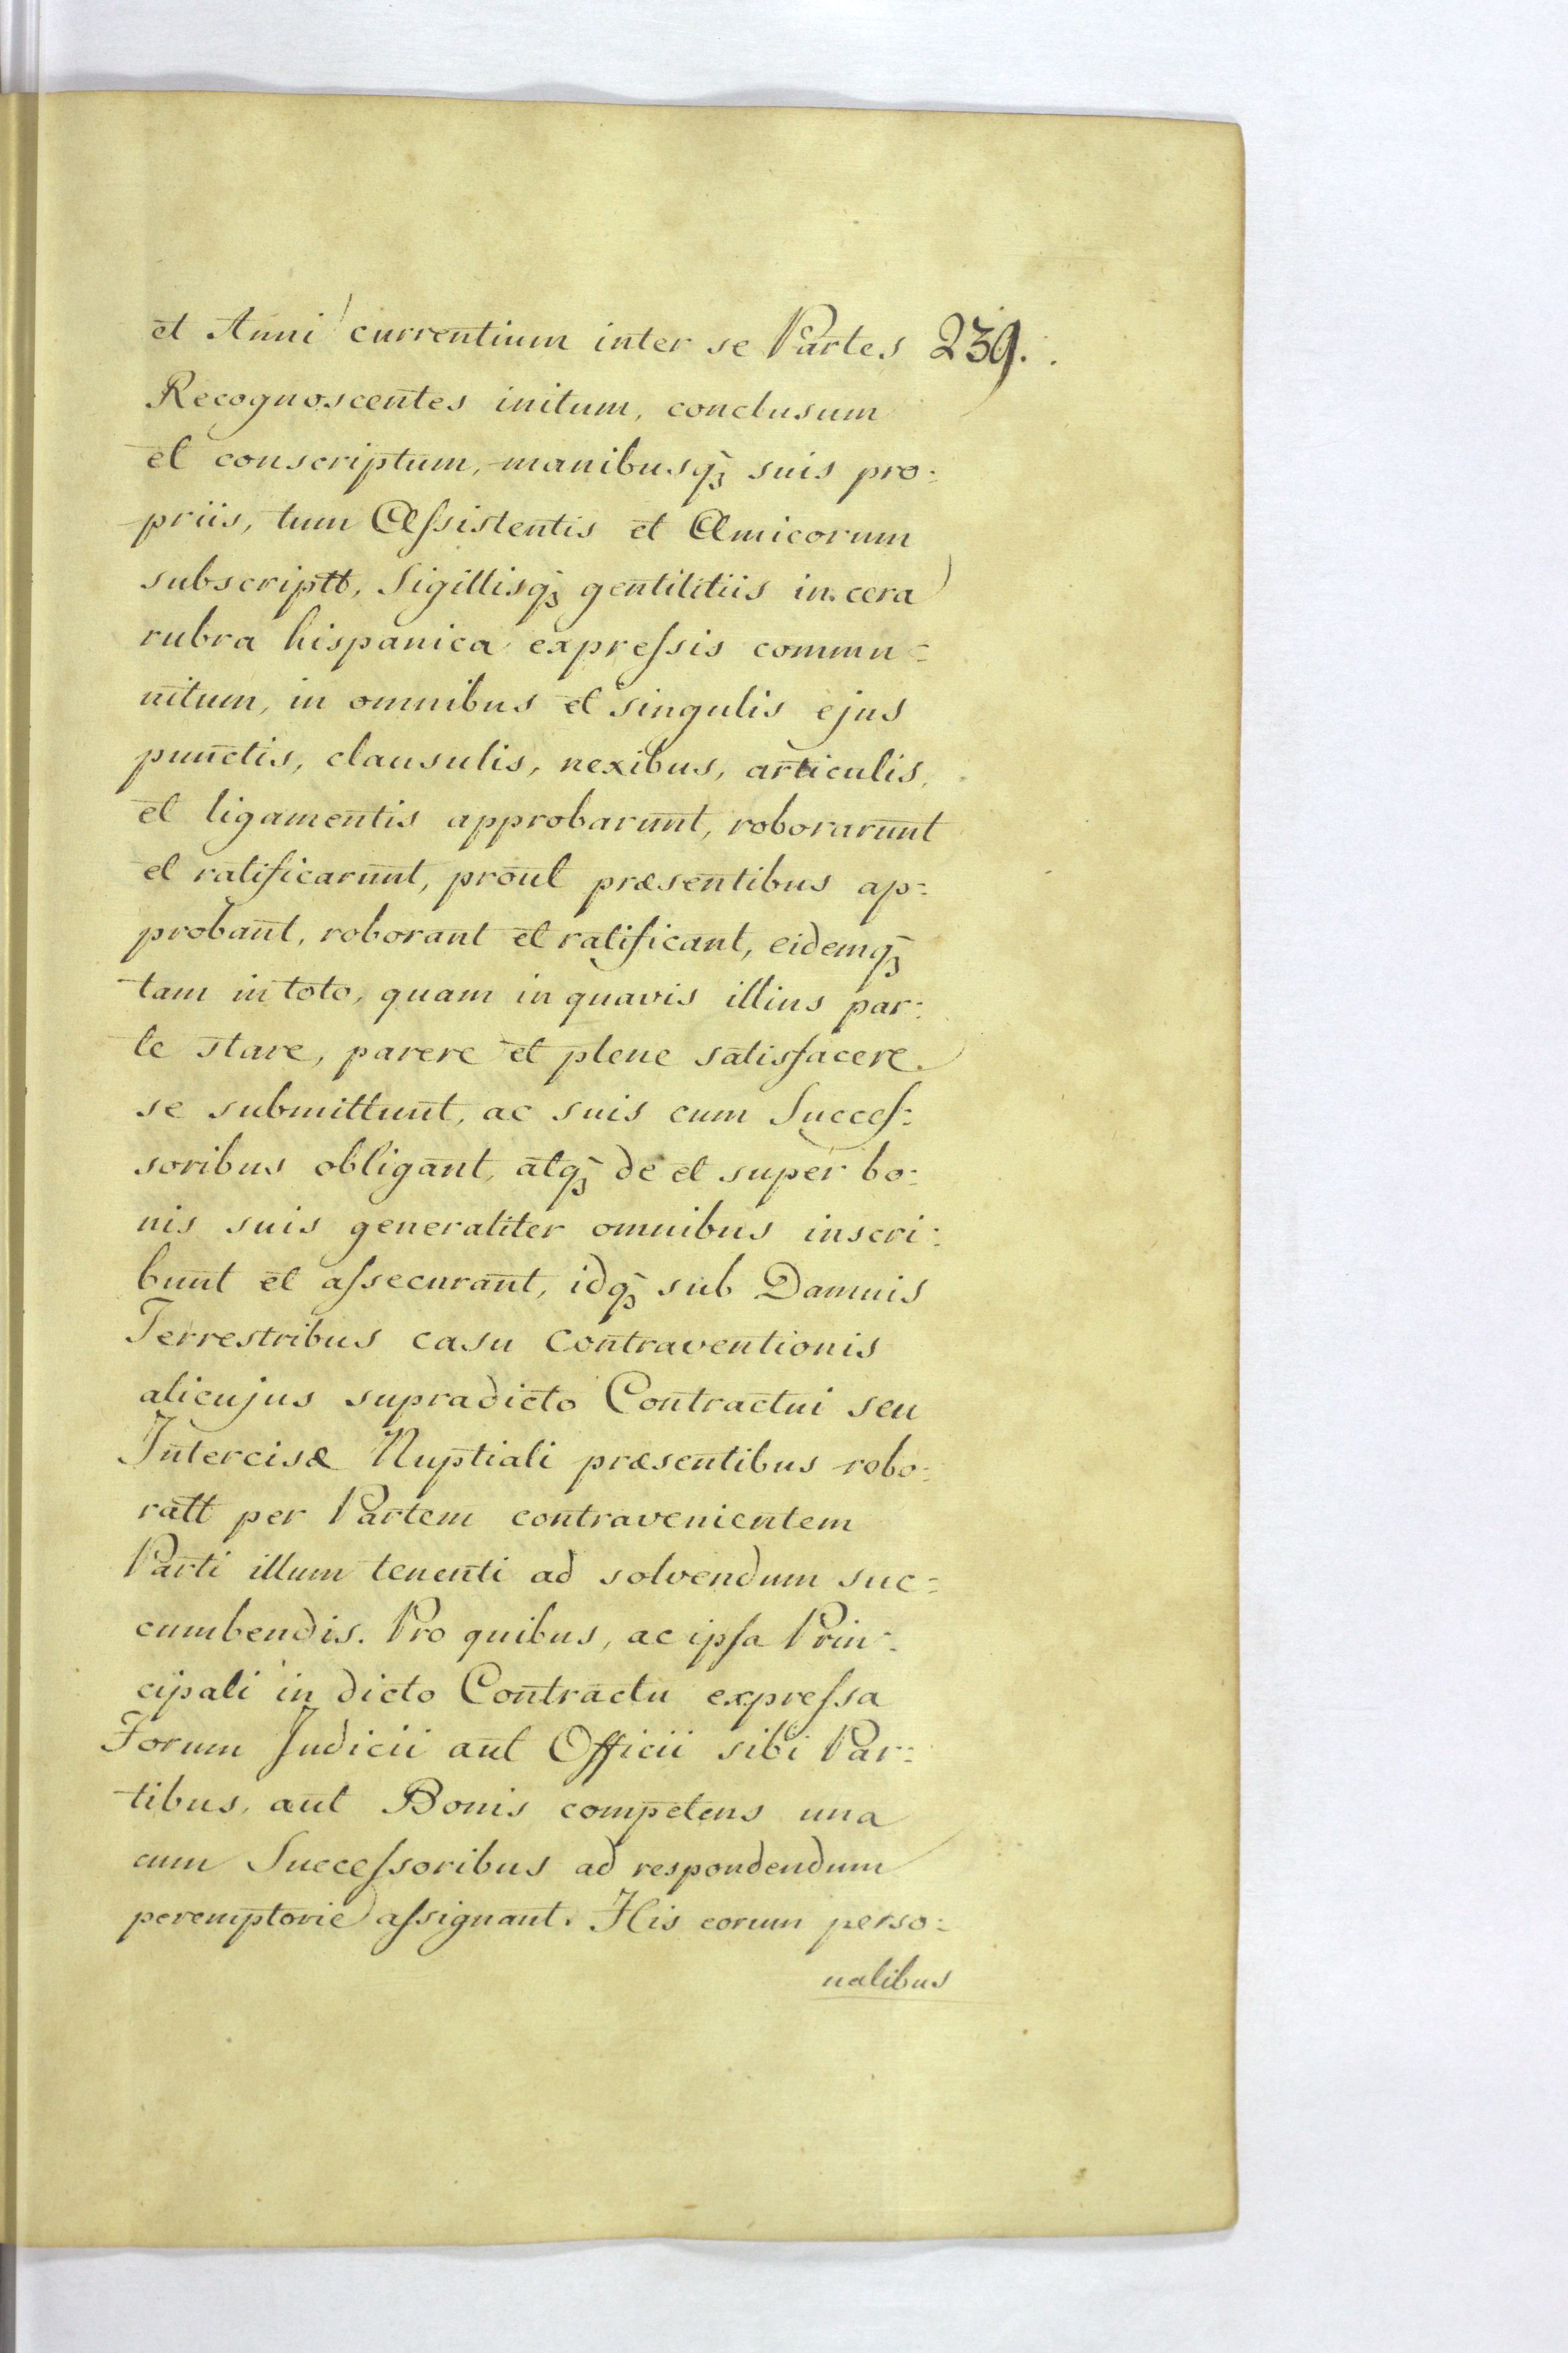 et Anni currentium inter se Partes 239.
Recognoscentes initum, conclusum
et conscriptum, manibusq̃ suis pro:
priis, tum Aſsistentis et Amicorum
subscriptt, Sigillisq̃ gentilitiis in cera
rubra hispanica expreſsis commu:
nitum, in omnibus et singulis ejus
punctis, clausulis, nexibus, articulis,
et ligamentis approbarunt, roborarunt
et ratificarunt, prout præsentibus ap:
probant, roborant et ratificant, eidemq̃
tam in toto, quam in quavis illius par:
te stare, parere et plene satisfacere
se submittunt, ac suis cum Succeſ:
soribus obligant, atq̃ de et super bo:
nis suis generaliter omnibus inscri:
bunt et aſsecurant, idq̃ sub Damnis
Terrestribus casu contraventionis
alicujus supradicto Contractui seu
Intercisæ Nuptiali præsentibus robo:
ratt per Partem contravenientem
Parti illum tenenti ad solvendum suc:
cumbendis. Pro quibus, ac ipſa Prin:
cipali in dicto Contractu expreſsa
Forum Judicii aut Officii sibi Par:
tibus, aut Bonis competens una
cum Succeſsoribus ad respondendum
peremptorie aſsignant. His eorum perso:
nalibus